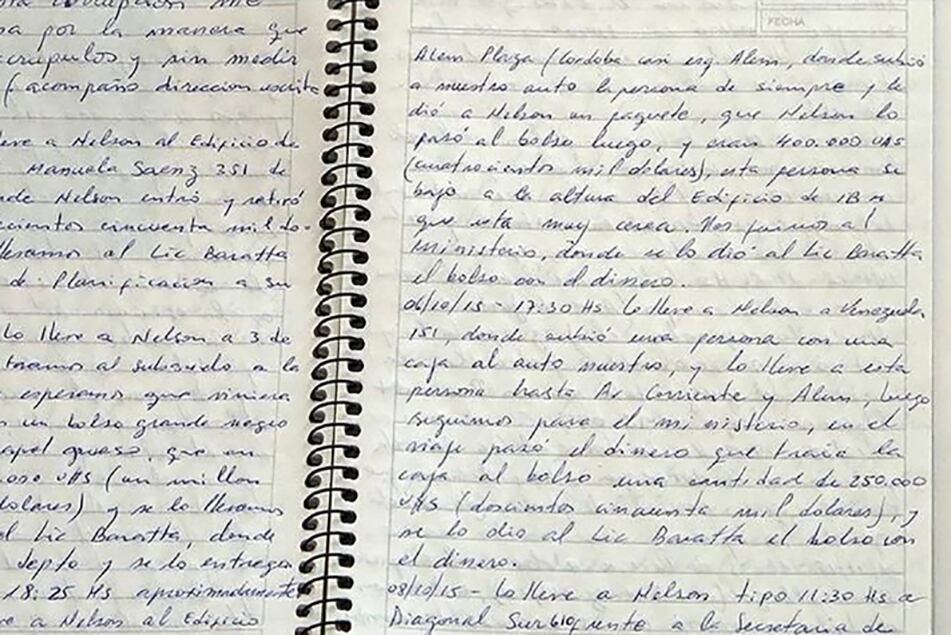 por la manera que
escrupulos y sin medir
(acompaño direccion escrita
lleve a Nelson al Edificio de
Manuela Saenz 351 de
donde Nelson entró y retiró
cientos cincuenta mil do-
llevamos al Lic Baratta
de Planificacion a su
Lo lleve a Nelson a 3 de
entramos al subsuelo a la
esperamos que viniera
un bolso grande negro
papel grueso, que en
000 U$S (un millon
dolares) y se lo llevamos
al Lic Baratta, donde
depto y se lo entrega
18:25 Hs aproximadamente
lleve a Nelson al Edificio
FECHA
Alem Plaza (Cordoba casi esq. Alem, donde subió
a nuestro auto la persona de siempre y le
dió a Nelson un paquete, que Nelson lo
pasó al bolso luego, y eran 400.000 U$S
(cuatrocientos mil dolares), esta persona se
bajo a la altura del Edificio de IBM
que esta muy cerca. Nos fuimos al
ministerio, donde se lo dió al Lic Baratta
el bolso con el dinero.
06/10/15 - 17:30 Hs Lo lleve a Nelson a Venezuela
151, donde subió una persona con una
caja al auto nuestro, y lo lleve a esta
persona hasta Av Corriente y Alem, luego
seguimos para el ministerio, en el
viaje pasó el dinero que traia la
caja al bolso una cantidad de 250.000
U$S (doscientos cincuenta mil dolares), y
se lo dio al Lic Baratta el bolso con
el dinero.
08/10/15 - Lo lleve a Nelson tipo 11:30 Hs a
Diagonal Sur 610, frente a la Secretaria de